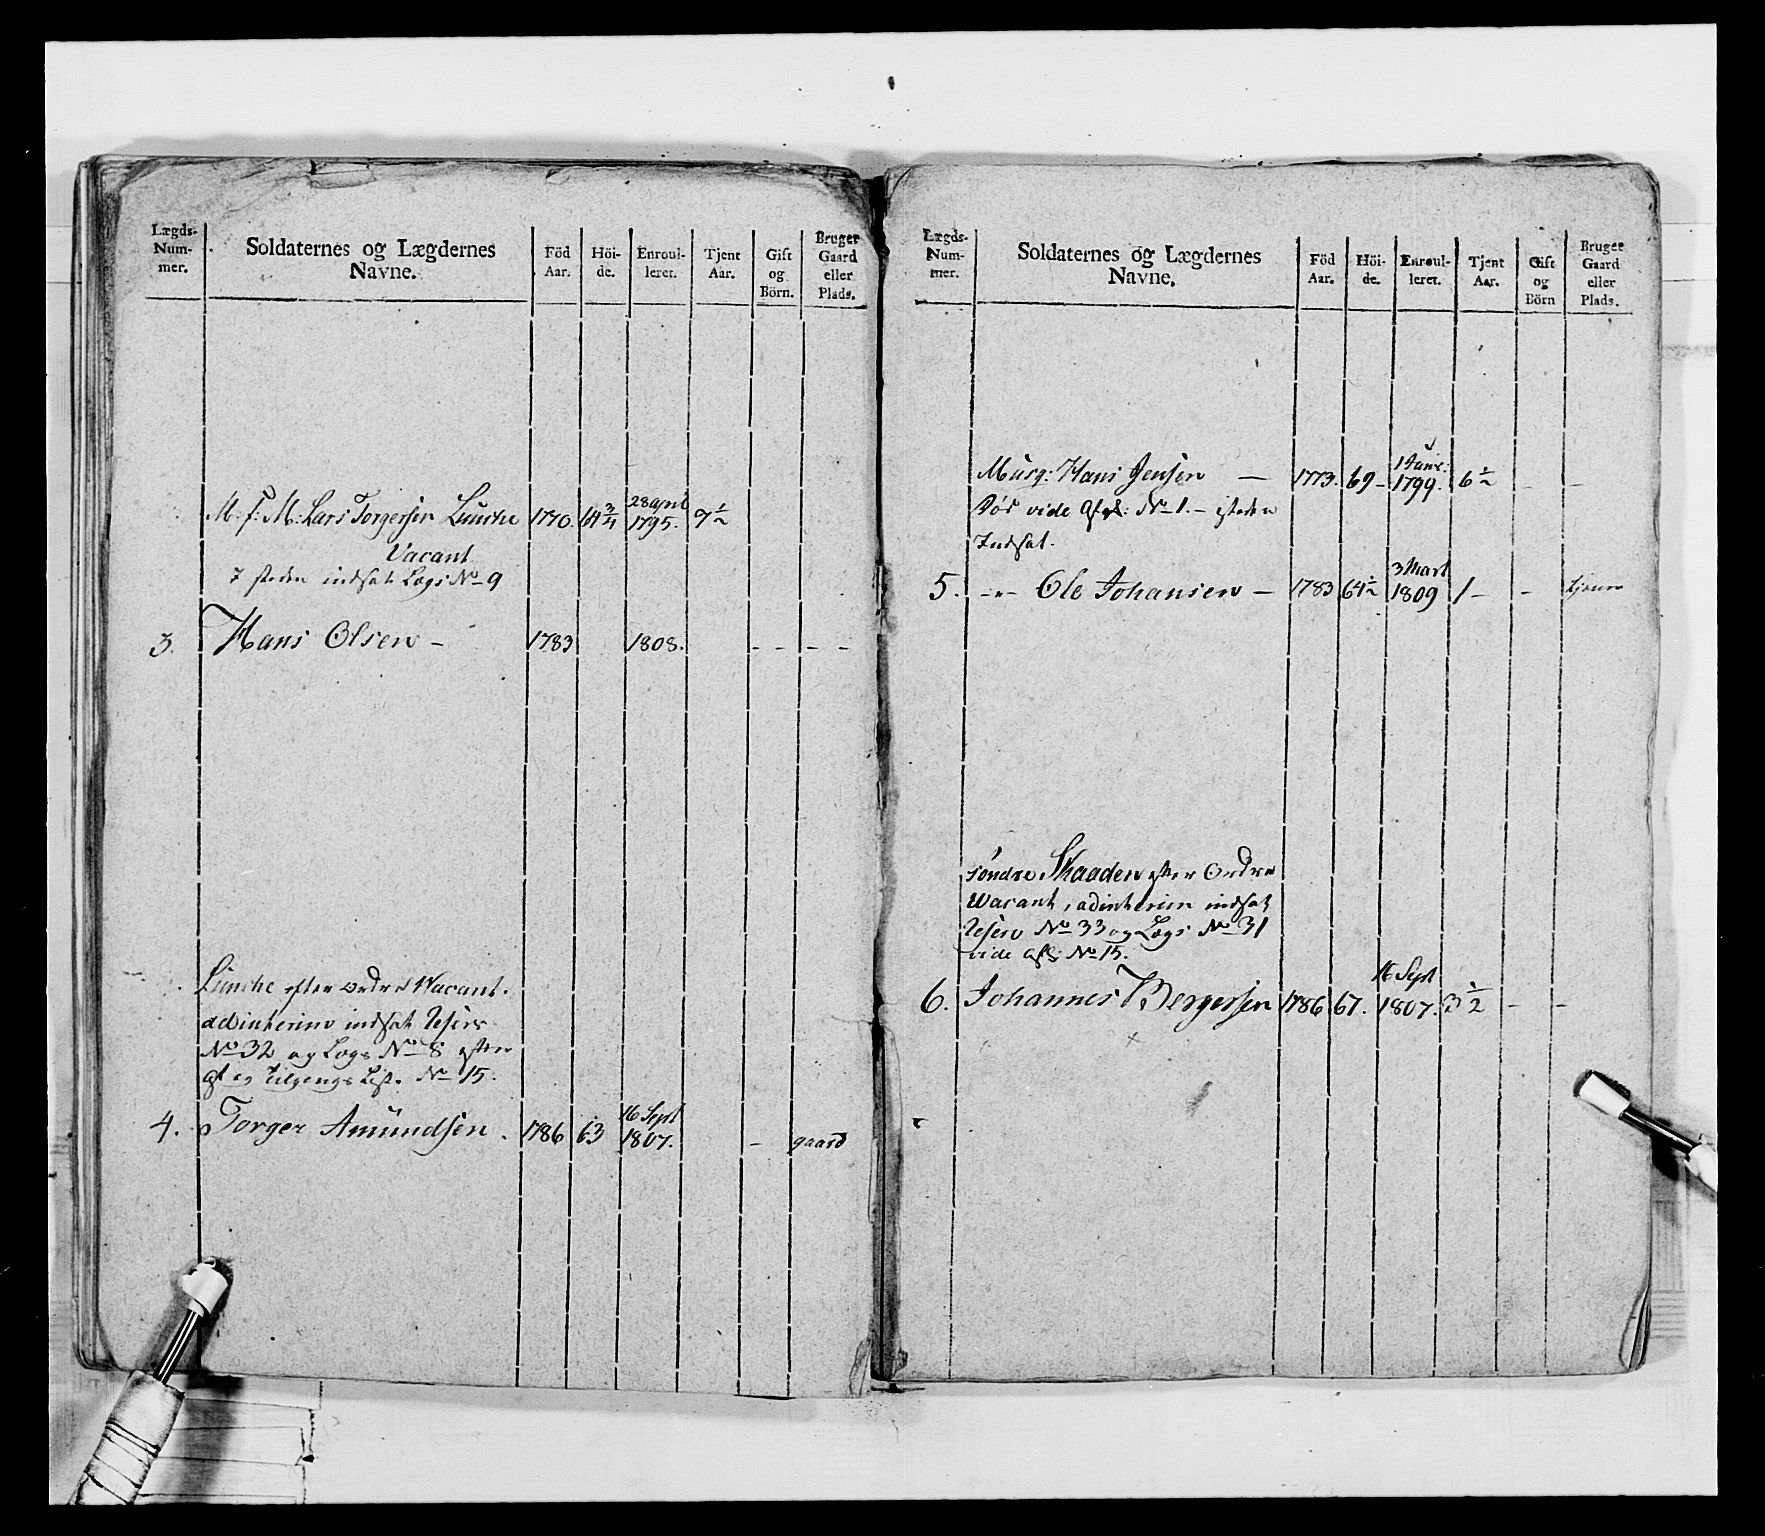 Lægds-
Num-
mer.
Soldaternes og Lægdernes
Navne.
Föd
Aar.
Höi-
de.
Enroul-
leret.
Tjent
Aar.
Gift
og
Börn.
Bruger
Gaard
eller
Plads.
28 april
M. f. M: Lars Torgersen Lunche 1770. 64 3/4 1795. 7 1/2
Vacant
steden indsat Lægs No 9
3. Hans Olsen - 1783 1808. - - - -
Lunche efter ordre Vacant.
adinterim indsat Reserv
No 32 og Lægs No 8 efter
af og tilgangs List. No 15.
16 Sept
4. Torger Amundsen. 1786 63 1807. - gaard
Lægds-
Num-
mer.
Soldaternes og Lægdernes
Navne.
Föd
Aar.
Höi-
de.
Enroul-
leret.
Tjent
Aar.
Gift
og
Börn
Bruger
Gaard
eller
Plads.
Musq: Hans Jensen - 1773. 69 - 1799. 6 1/2 - -
Död vide No 1. - isteden
Indsat.
3 Mart
5. -"- Ole Johansen - 1783 64 1/2 1809 1 - - tjener
söndre Skaaden efter Ordre
Vacant, adinterim indsat
Reserv No 33 og Lægs No 31
vide afg: No 15.
16 Sept
6. Johannes Bergersen 1786 67. 1807. 3 1/2 - -